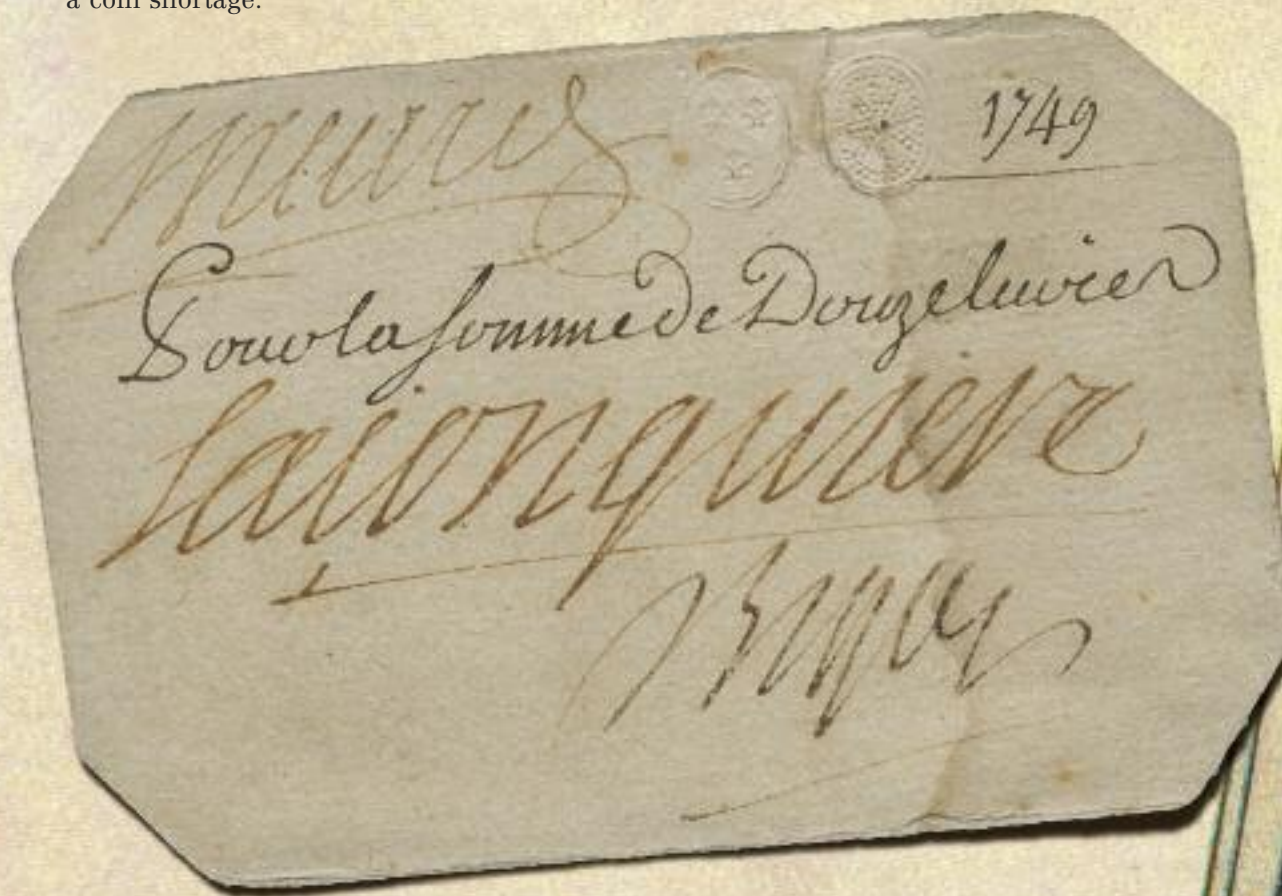 a coin shortage.
1749
Pour la somme de Douze livres
Lajonquiere
Bigot